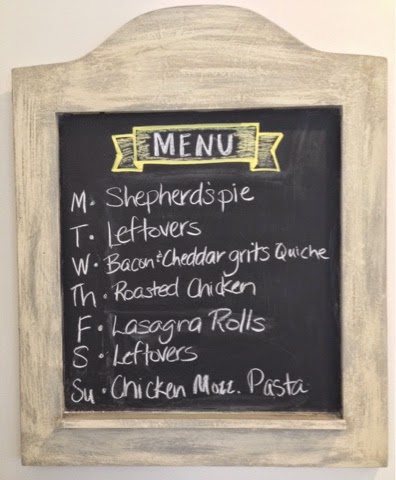 MENU
M. Shepherd's pie
T. Leftovers
W. Bacon + Cheddar grits Quiche
Th. Roasted Chicken
F. Lasagna Rolls
S. Leftovers
Su. Chicken Mozz. Pasta